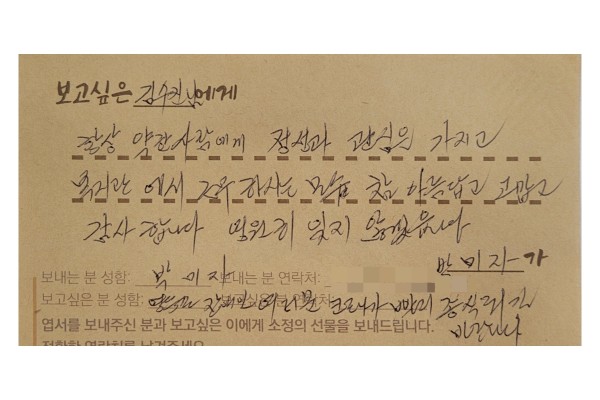 보고싶은 김수진님에게
항상 약한사람에게 정성과 관심의 가지고
복지관에서 겨우 하시는 모습 참 아름답고 고맙고
감사합니다 영원히 잊지 않겠읍니다
박미자가
보내는 분 성함: 박미자 보내는 분 연락처:
보고싶은 분 성함: 장애인 여러분 코로나가 빨리 종식되길
바랍니다
엽서를 보내주신 분과 보고싶은 이에게 소정의 선물을 보내드립니다.
정확한 연락처를 남겨주세요